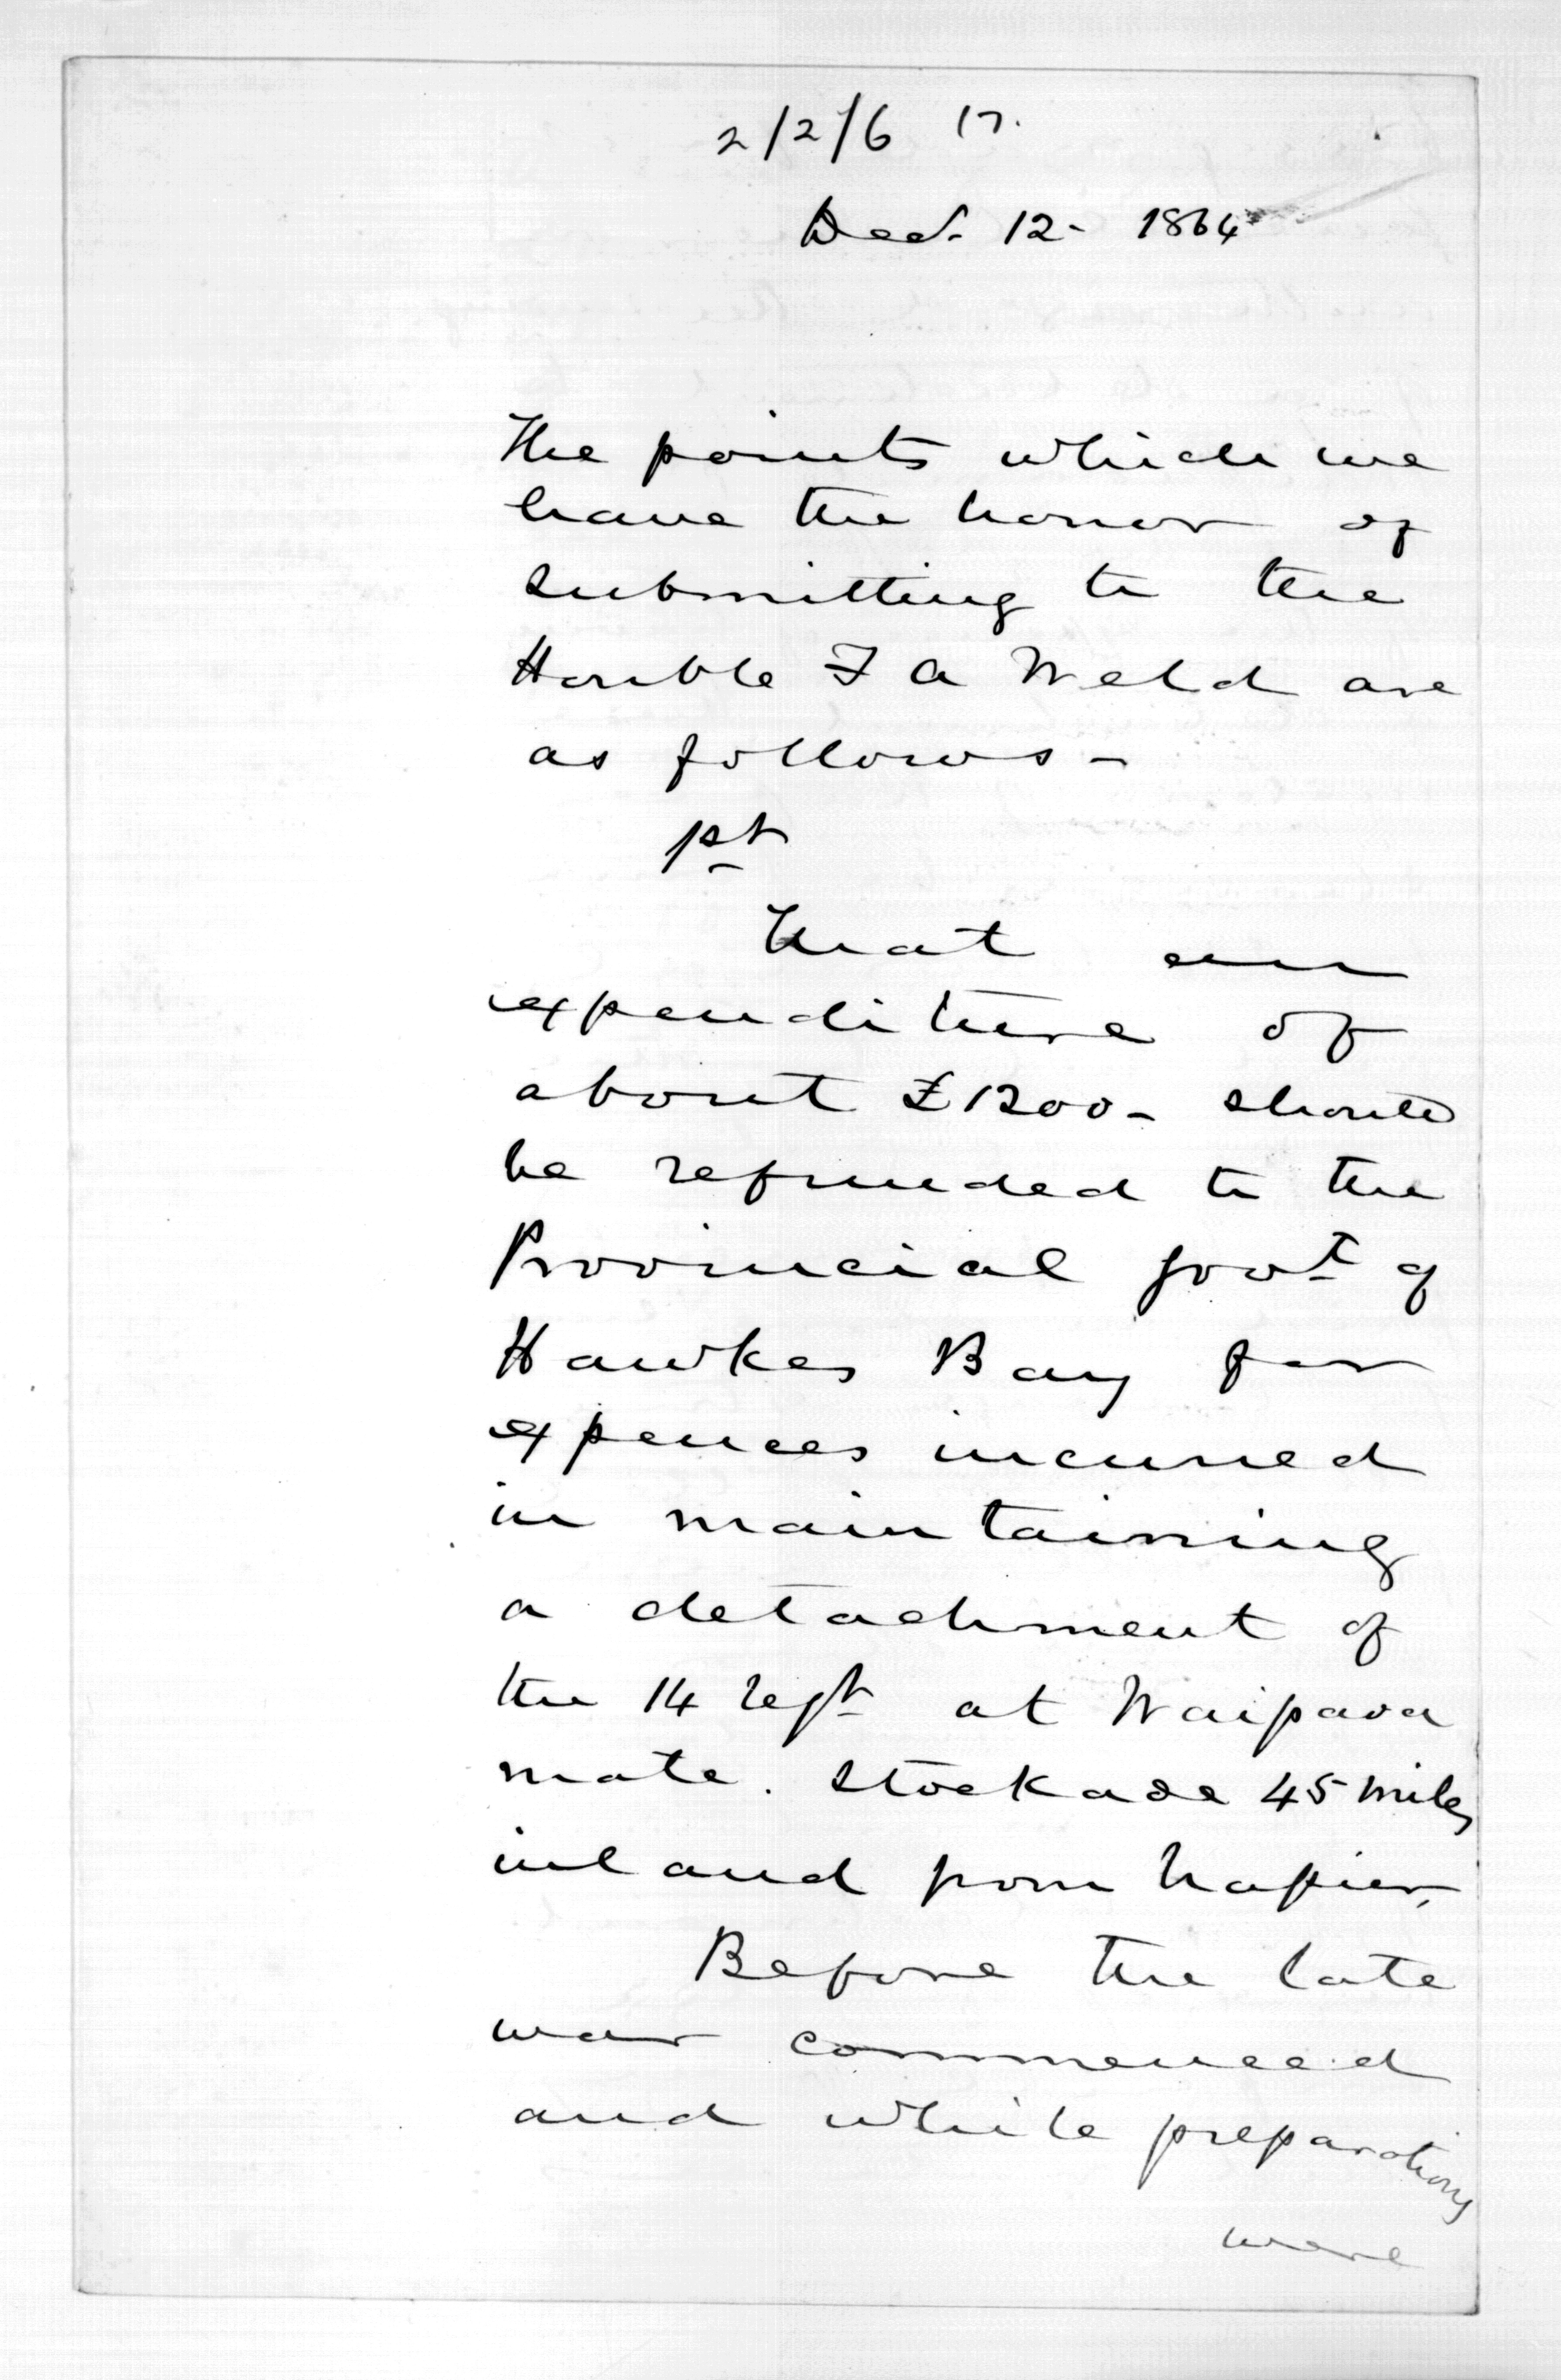 2/2/6 17.
Dec. 12- 1864
The points which we
have the honor of
submitting to the
Honble F A Weld are
as follows -
1st
That an
expenditure of
about £1200- should
be refunded to the
Provincial Govt of
Hawkes Bay for
expences incurred
in maintaining
a detachment of
the 14 Regt at Waipawa
mate. Stockade 45 miles
inland from Napier.
Before the late
war commenced
and while preparations
were